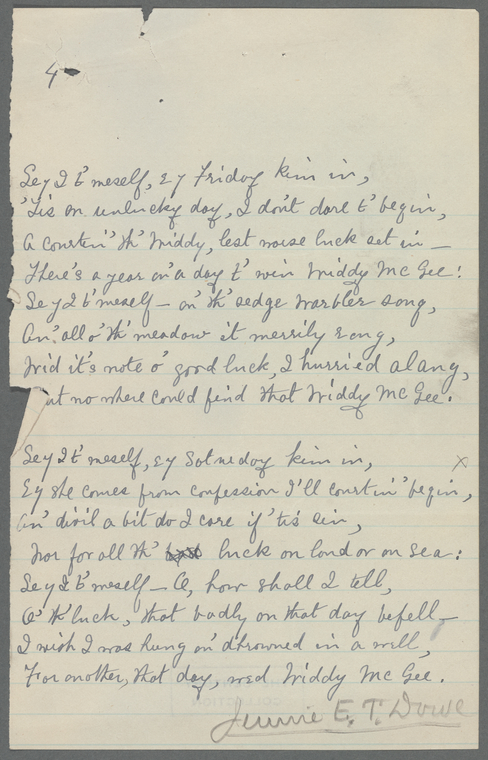 4
Sey I t' meself, ez Friday kim in,
'Tis an unlucky day, I don't dare t' begin,
A courtin' th' Widdy, lest worse luck set in —
There's a year an' a day t' win Widdy Mc Gee!
Sey I t' meself — an' th' sedge warbler song,
An' all o' th' meadow it merrily rang,
Wid it's note o' good luck, I hurried alang,
ut no where could find that Widdy Mc Gee.
Sey I t' meself, ez Saturday kim in,
Ez she comes from confession I'll courtin' begin,
An' divil a bit do I care if 'tis sin,
Nor for all th' luck on land or on sea:
Sey I t' meself — O, how shall I tell,
O' th' luck, that badly on that day befell —
I wish I was hung an' dhrowned in a well,
For another, that day, wed Widdy Mc Gee.
Jennie E. T. Dowe